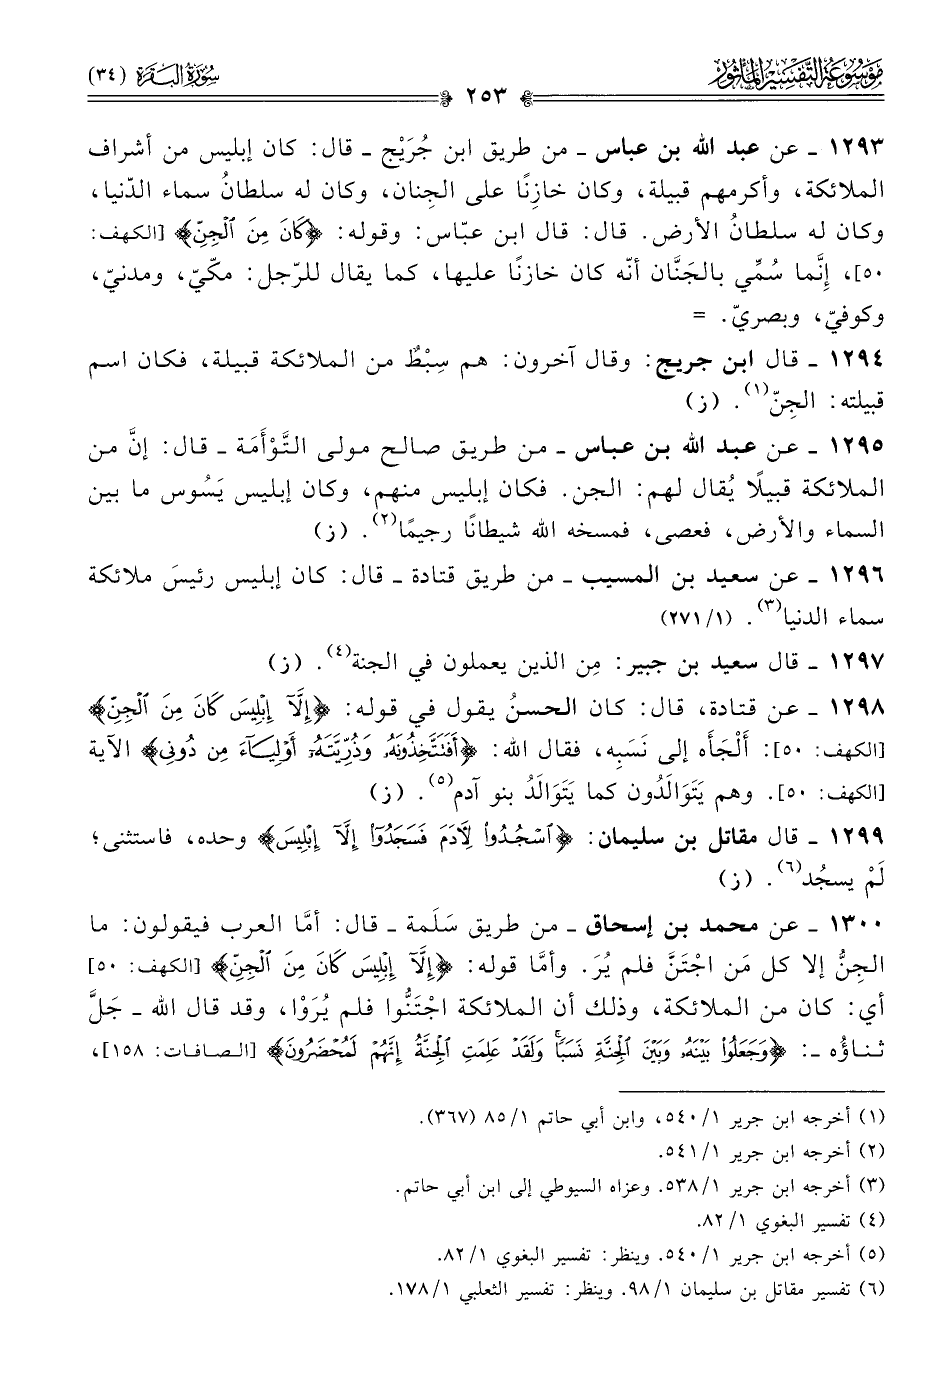 مَوْسُوعَةُ التَّفْسِيرِ المَأْثُورِ
٢٥٣
سُورَةُ البَقَرَة (٣٤)
١٢٩٣ ـ عن عبد الله بن عباس ـ من طريق ابن جُرَيْج ـ قال: كان إبليس من أشراف
الملائكة، وأكرمهم قبيلة، وكان خازِنًا على الجِنان، وكان له سلطانُ سماء الدّنيا،
وكان له سلطانُ الأرض. قال: قال ابن عبّاس: وقوله: ﴿كَانَ مِنَ ٱلْجِنِّ﴾ [الكهف:
٥٠]، إنَّما سُمِّي بالجَنَّان أنّه كان خازنًا عليها، كما يقال للرّجل: مكّيّ، ومدنيّ،
وكوفيّ، وبصريّ. =
١٢٩٤ ـ قال ابن جريج: وقال آخرون: هم سِبْطٌ من الملائكة قبيلة، فكان اسم
قبيلته: الجِنّ(١). (ز)
١٢٩٥ ـ عن عبد الله بن عباس ـ من طريق صالح مولى التَّوْأَمَة ـ قال: إنَّ من
الملائكة قبيلًا يُقال لهم: الجن. فكان إبليس منهم، وكان إبليس يَسُوس ما بين
السماء والأرض، فعصى، فمسخه الله شيطانًا رجيمًا(٢). (ز)
١٢٩٦ ـ عن سعيد بن المسيب ـ من طريق قتادة ـ قال: كان إبليس رئيسَ ملائكة
سماء الدنيا(٣). (٢٧١/١)
١٢٩٧ ـ قال سعيد بن جبير: مِن الذين يعملون في الجنة(٤). (ز)
١٢٩٨ ـ عن قتادة، قال: كان الحسنُ يقول في قوله: ﴿إِلَّآ إِبْلِيسَ كَانَ مِنَ ٱلْجِنِّ﴾
[الكهف: ٥٠]: أَلْجَأه إلى نَسَبِه، فقال الله: ﴿أَفَتَتَّخِذُونَهُۥ وَذُرِّيَّتَهُۥٓ أَوْلِيَآءَ مِن دُونِى﴾ الآية
[الكهف: ٥٠]. وهم يَتَوَالَدُون كما يَتَوَالَدُ بنو آدم(٥). (ز)
١٢٩٩ ـ قال مقاتل بن سليمان: ﴿ٱسْجُدُوا۟ لِـَٔادَمَ فَسَجَدُوٓا۟ إِلَّآ إِبْلِيسَ﴾ وحده، فاستثنى؛
لَمْ يسجُد(٦). (ز)
١٣٠٠ ـ عن محمد بن إسحاق ـ من طريق سَلَمة ـ قال: أمَّا العرب فيقولون: ما
الجِنُّ إلا كل مَن اجْتَنَّ فلم يُرَ. وأمَّا قوله: ﴿إِلَّآ إِبْلِيسَ كَانَ مِنَ ٱلْجِنِّ﴾ [الكهف: ٥٠]
أي: كان من الملائكة، وذلك أن الملائكة اجْتَنُّوا فلم يُرَوْا، وقد قال الله ـ جَلَّ
ثناؤُه ـ: ﴿وَجَعَلُوا۟ بَيْنَهُۥ وَبَيْنَ ٱلْجِنَّةِ نَسَبًا ۚ وَلَقَدْ عَلِمَتِ ٱلْجِنَّةُ إِنَّهُمْ لَمُحْضَرُونَ﴾ [الصافات: ١٥٨]،
(١) أخرجه ابن جرير ٥٤٠/١، وابن أبي حاتم ٨٥/١ (٣٦٧).
(٢) أخرجه ابن جرير ٥٤١/١.
(٣) أخرجه ابن جرير ٥٣٨/١. وعزاه السيوطي إلى ابن أبي حاتم.
(٤) تفسير البغوي ٨٢/١.
(٥) أخرجه ابن جرير ٥٤٠/١. وينظر: تفسير البغوي ٨٢/١.
(٦) تفسير مقاتل بن سليمان ٩٨/١. وينظر: تفسير الثعلبي ١٧٨/١.